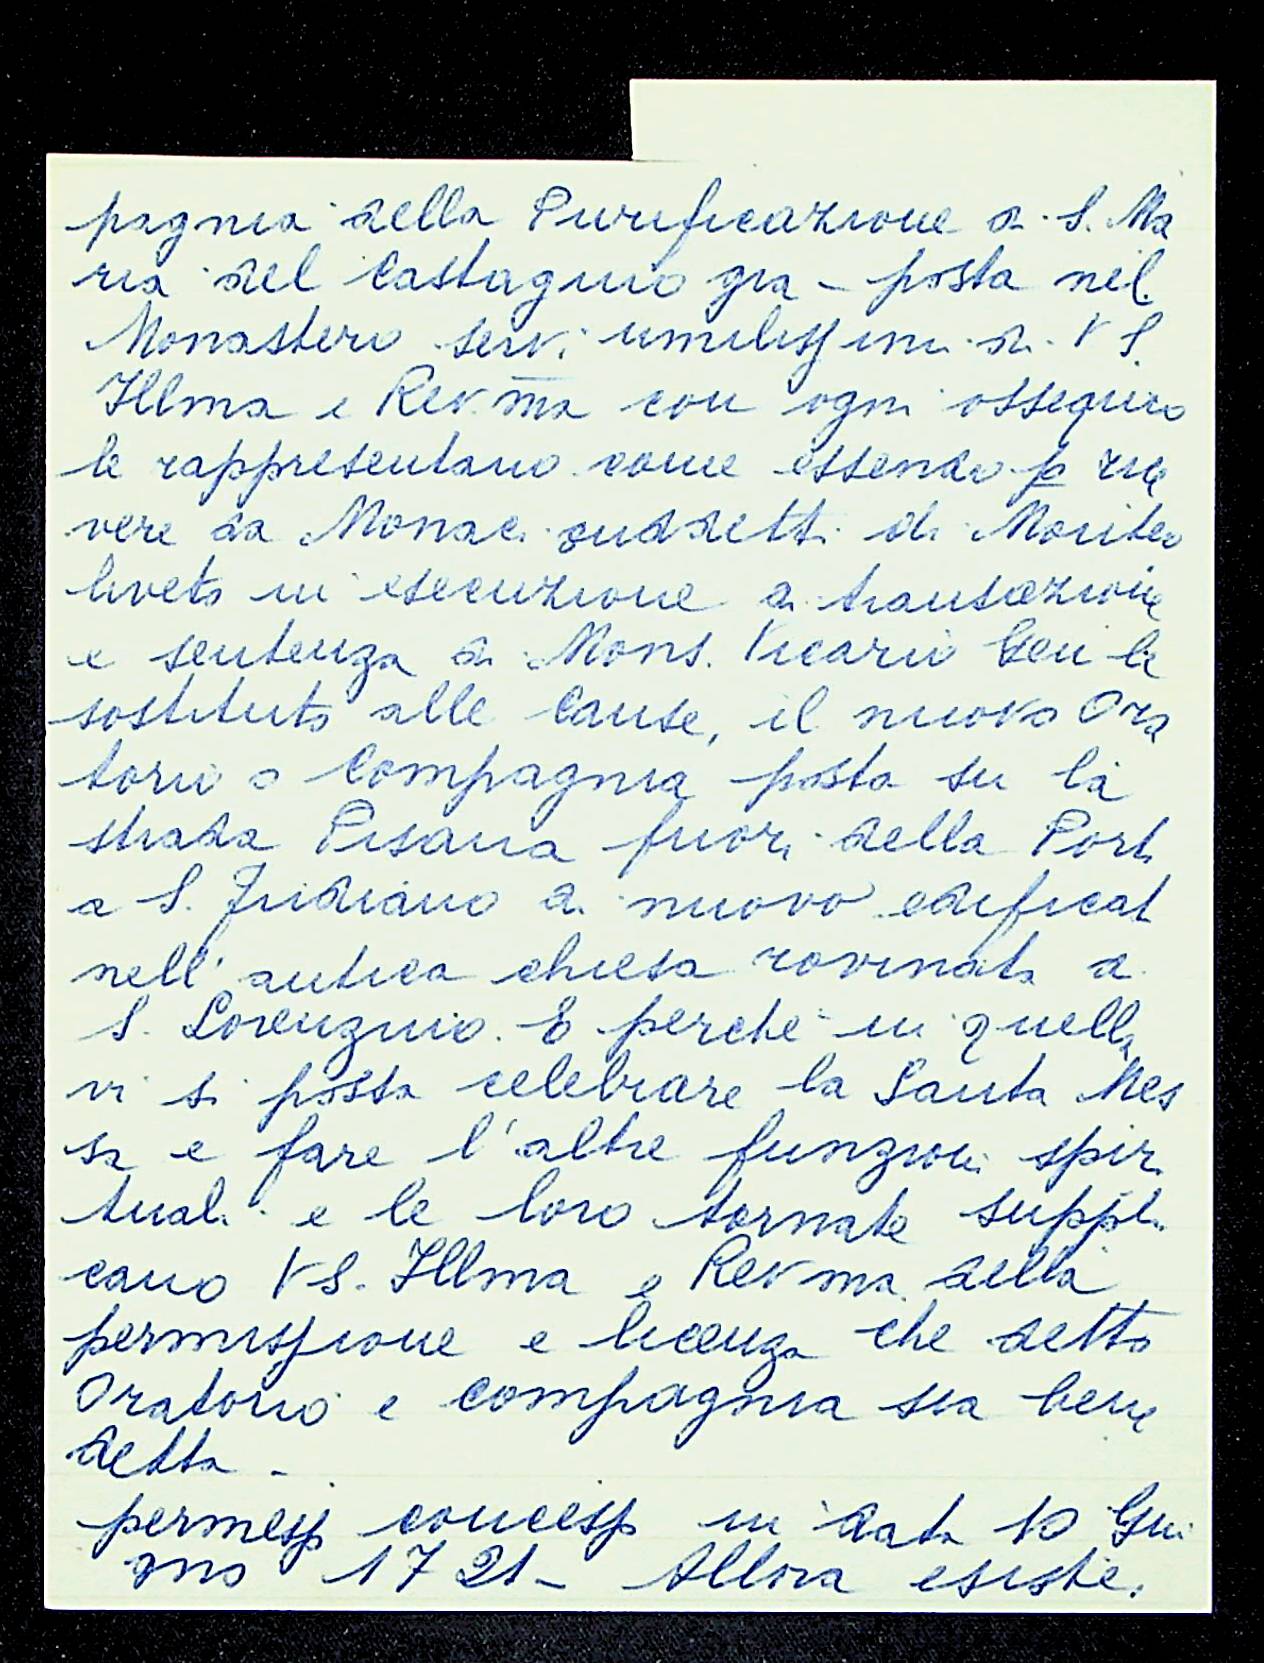 pagnia della Purificazione di S. Ma
ria del Castagnio gia - posta nel
Monastero serv. umilissimi di V S.
Illma e Rev. ma con ogni ossequio
le rappresentano come essendo p rice
vere da Monaci suddetti di Monteo
liveto in esecuzione di transazione
e sentenza di Mons. Vicario Gen le
sostituto alle Cause, il nuovo Ora
torio o Compagnia posta su la
strada Pisana fuori della Port
a S. Fridiano di nuovo edificat
nell' antica chiesa rovinata di
S. Lorenzino. E perche in quella
vi si possa celebrare la Santa Mes
sa e fare l'altre funzioni spiri
tuali e le loro tornate suppli
cano VS. Illma e Rev ma della
permissione e licenza che detto
Oratorio e compagnia sia bene
detta -
permesso concesso in data 10 Giu
gno 1721 - Allora esiste.